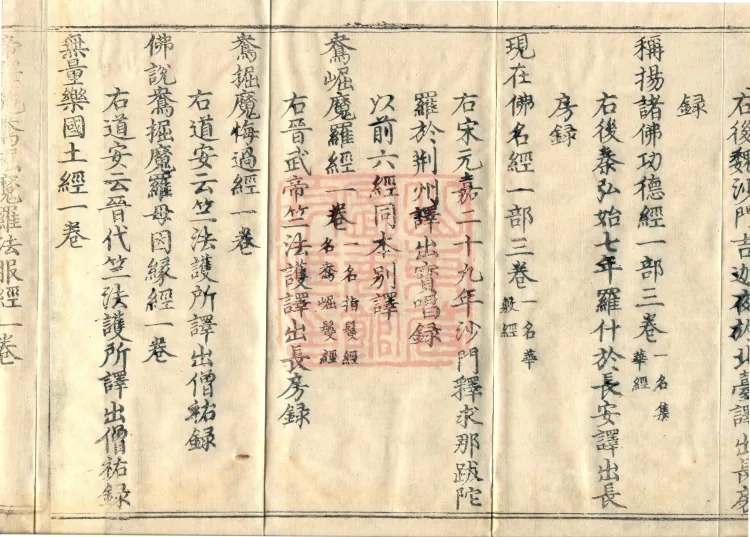 右後魏沙門吉迦夜於北臺譯出長房
録
稱揚諸佛功德經一部三卷一名集華經
右後秦弘始七年羅什於長安譯出長
房録
現在佛名經一部三卷一名華敷經
右宋元嘉二十九年沙門釋求那跋陀
羅於荆州譯出寶唱録
以前六經同本別譯
鴦崛魔羅經一卷一名指鬘經名鴦崛鬘經
右晉武帝竺法護譯出長房録
鴦掘魔悔過經一卷
右道安云竺法護所譯出僧祐録
佛說鴦掘魔羅母因緣經一卷
右道安云晉代竺法護所譯出僧祐録
無量樂國土經一卷
魔羅法服經一卷